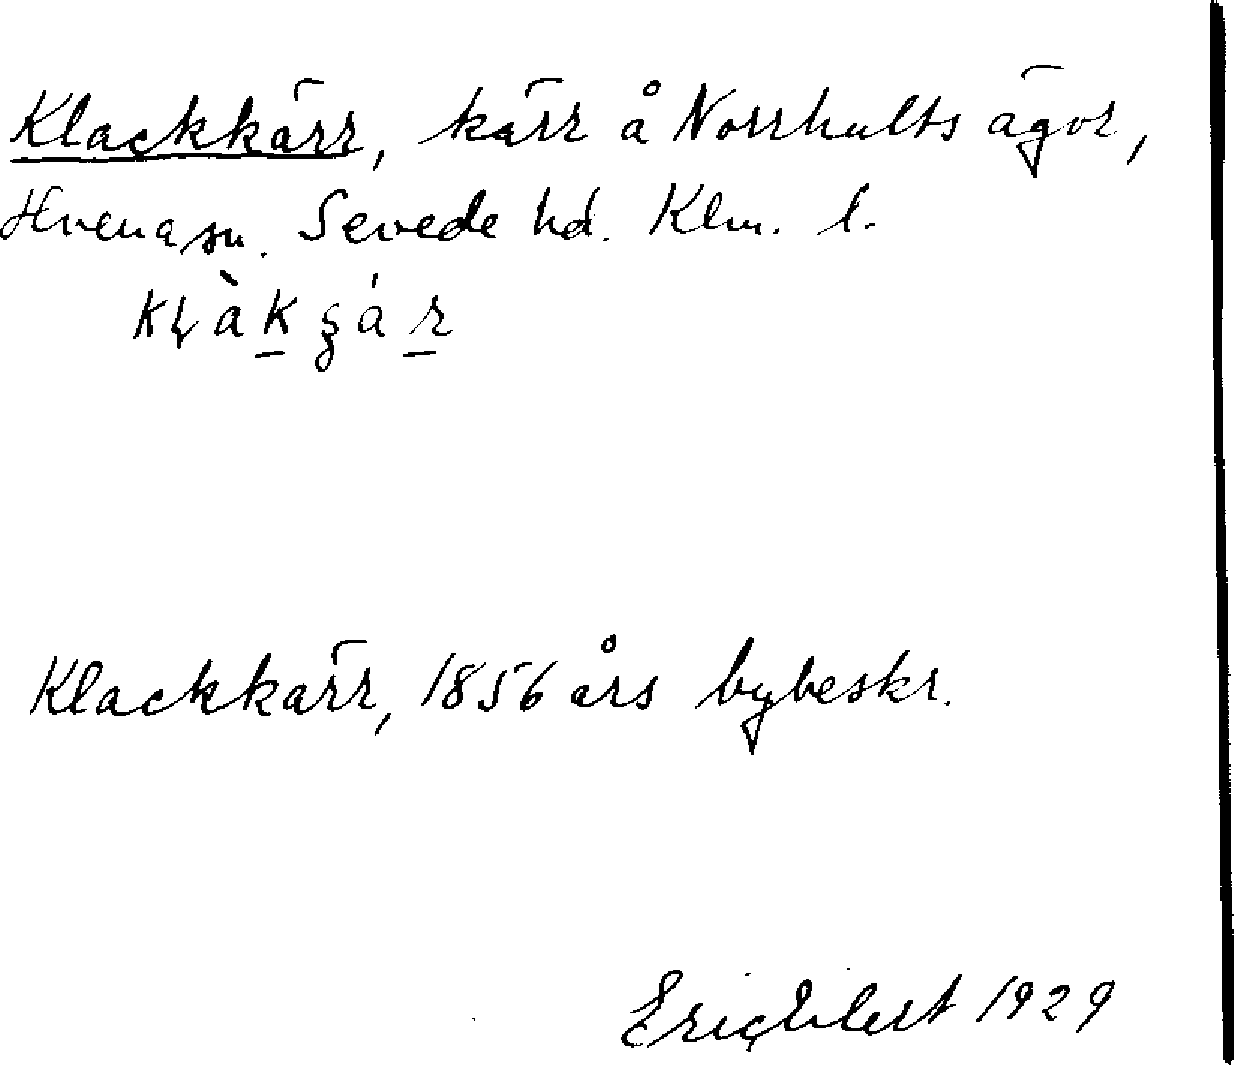 Klackkärr, kärr å Norrhults ägor,
Hvena sn. Sevede hd. Klm. l.
Klackkärr, 1856 års bybeskr.
Eric Elert 1929